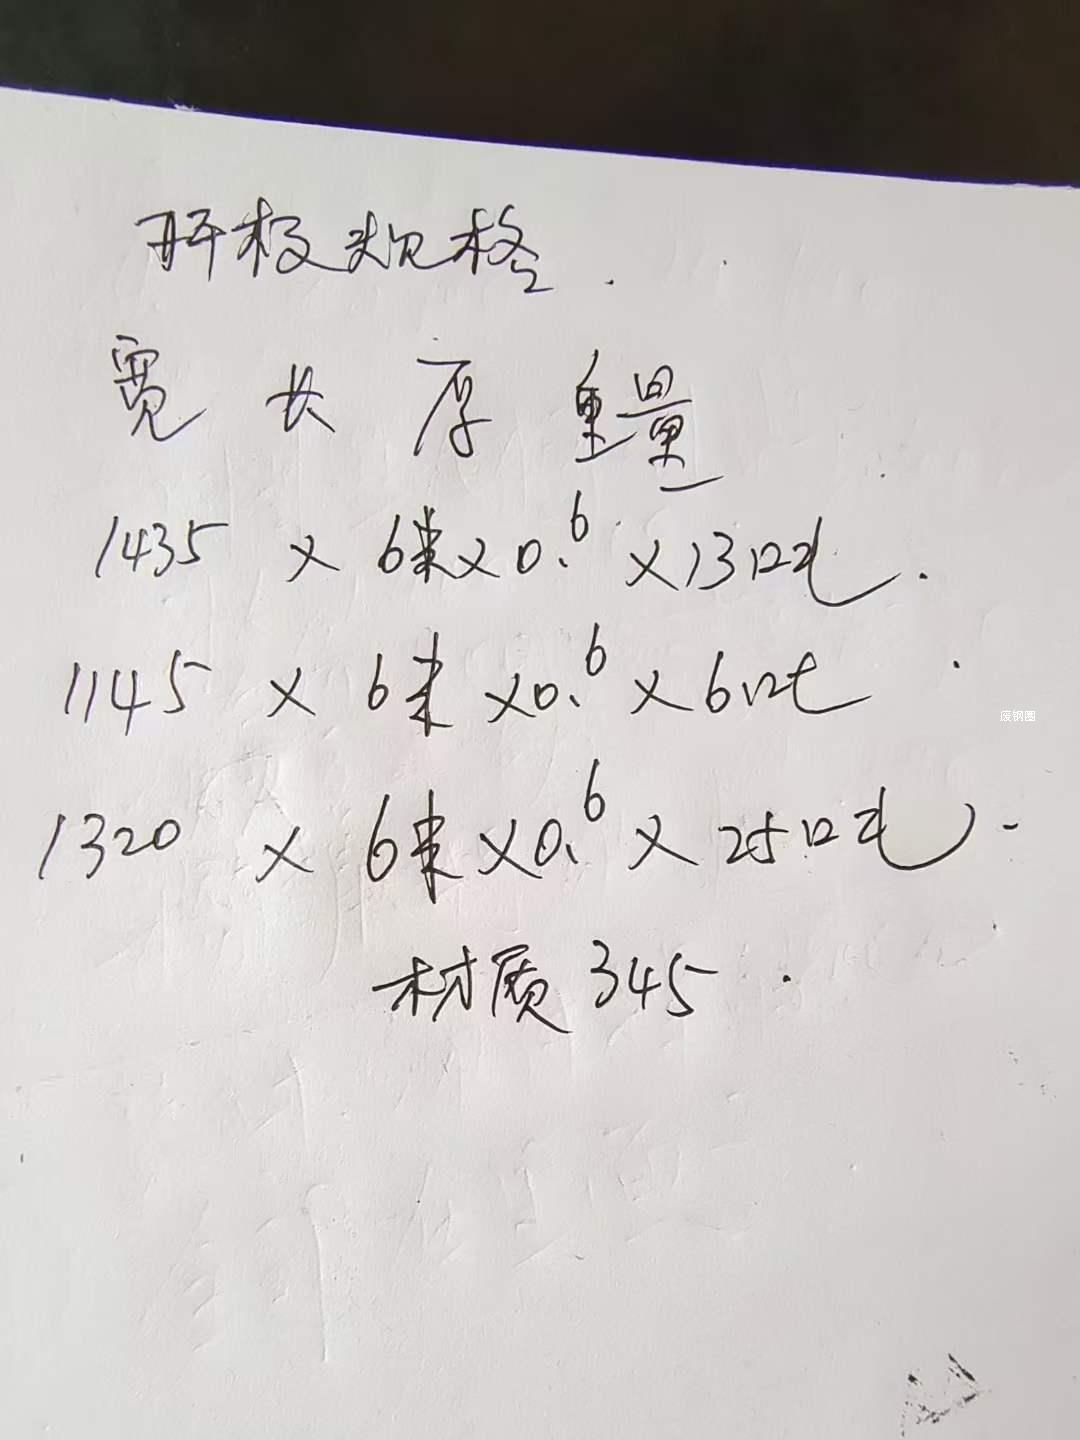 开板规格.
宽 长 厚 重量
1435 × 6米×0.6 ×13吨.
1145 × 6米 ×0.6 ×6吨
1320 × 6米×0.6 × 25吨.
材质345.
废钢圈